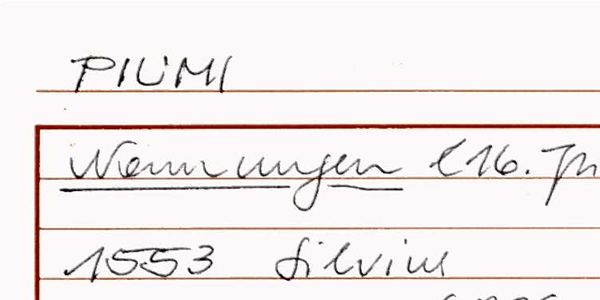 PIUMI
Nennungen (16. Jh
1553 Silvius